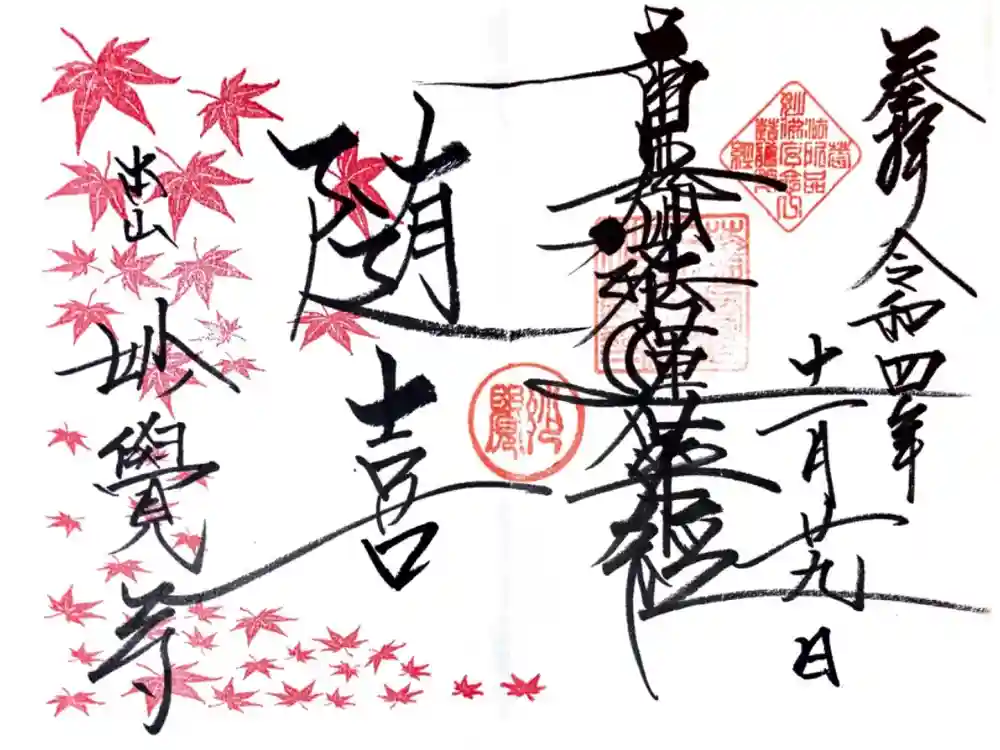 奉拝 令和四年
十一月廿九日
南無妙法蓮華経
随喜
本山 妙覺寺
妙覺